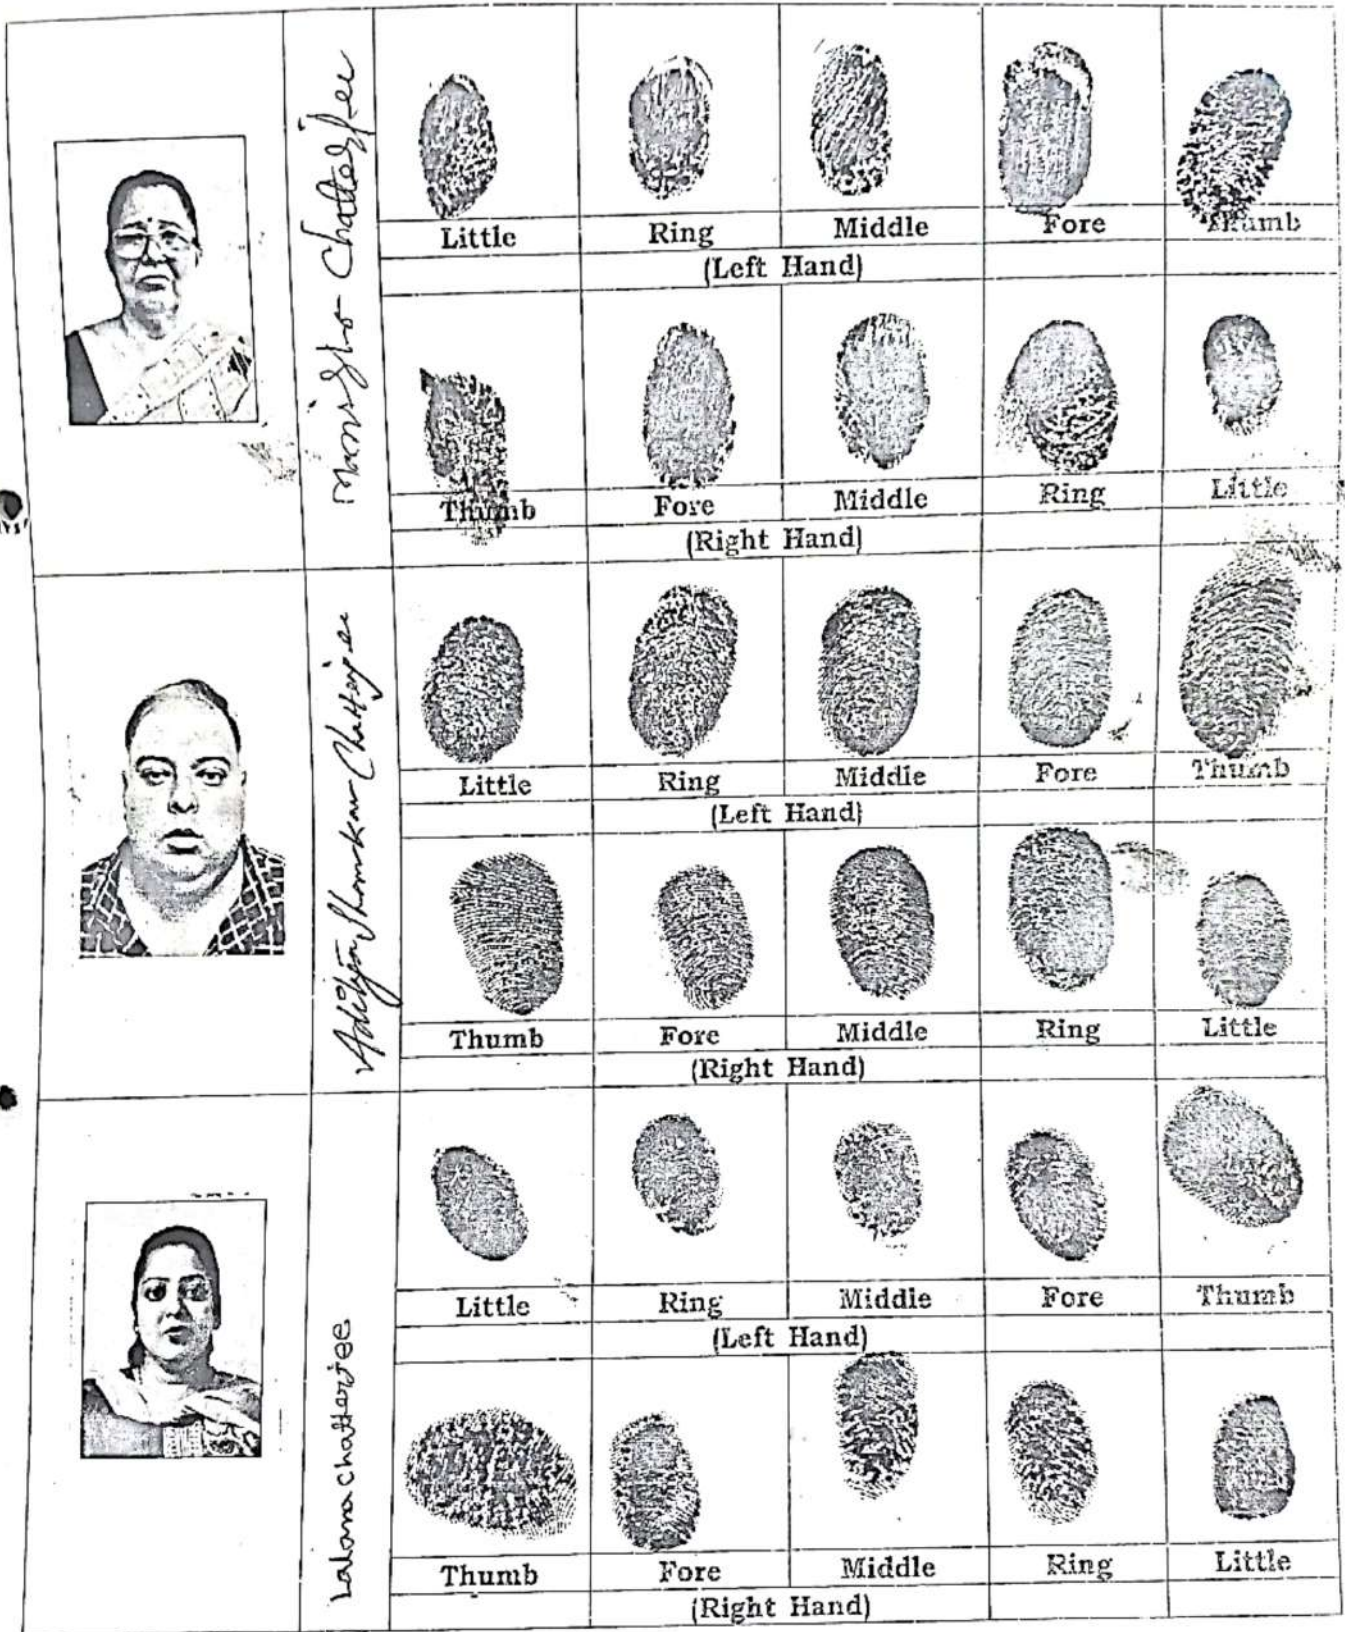 Chatterjee
Little Ring Middle Fore Thumb
(Left Hand)
Thumb Fore Middle Ring Little
(Right Hand)
Aditya Shankar Chatterjee
Little Ring Middle Fore Thumb
(Left Hand)
Thumb Fore Middle Ring Little
(Right Hand)
chatterjee
Little Ring Middle Fore Thumb
(Left Hand)
Thumb Fore Middle Ring Little
(Right Hand)